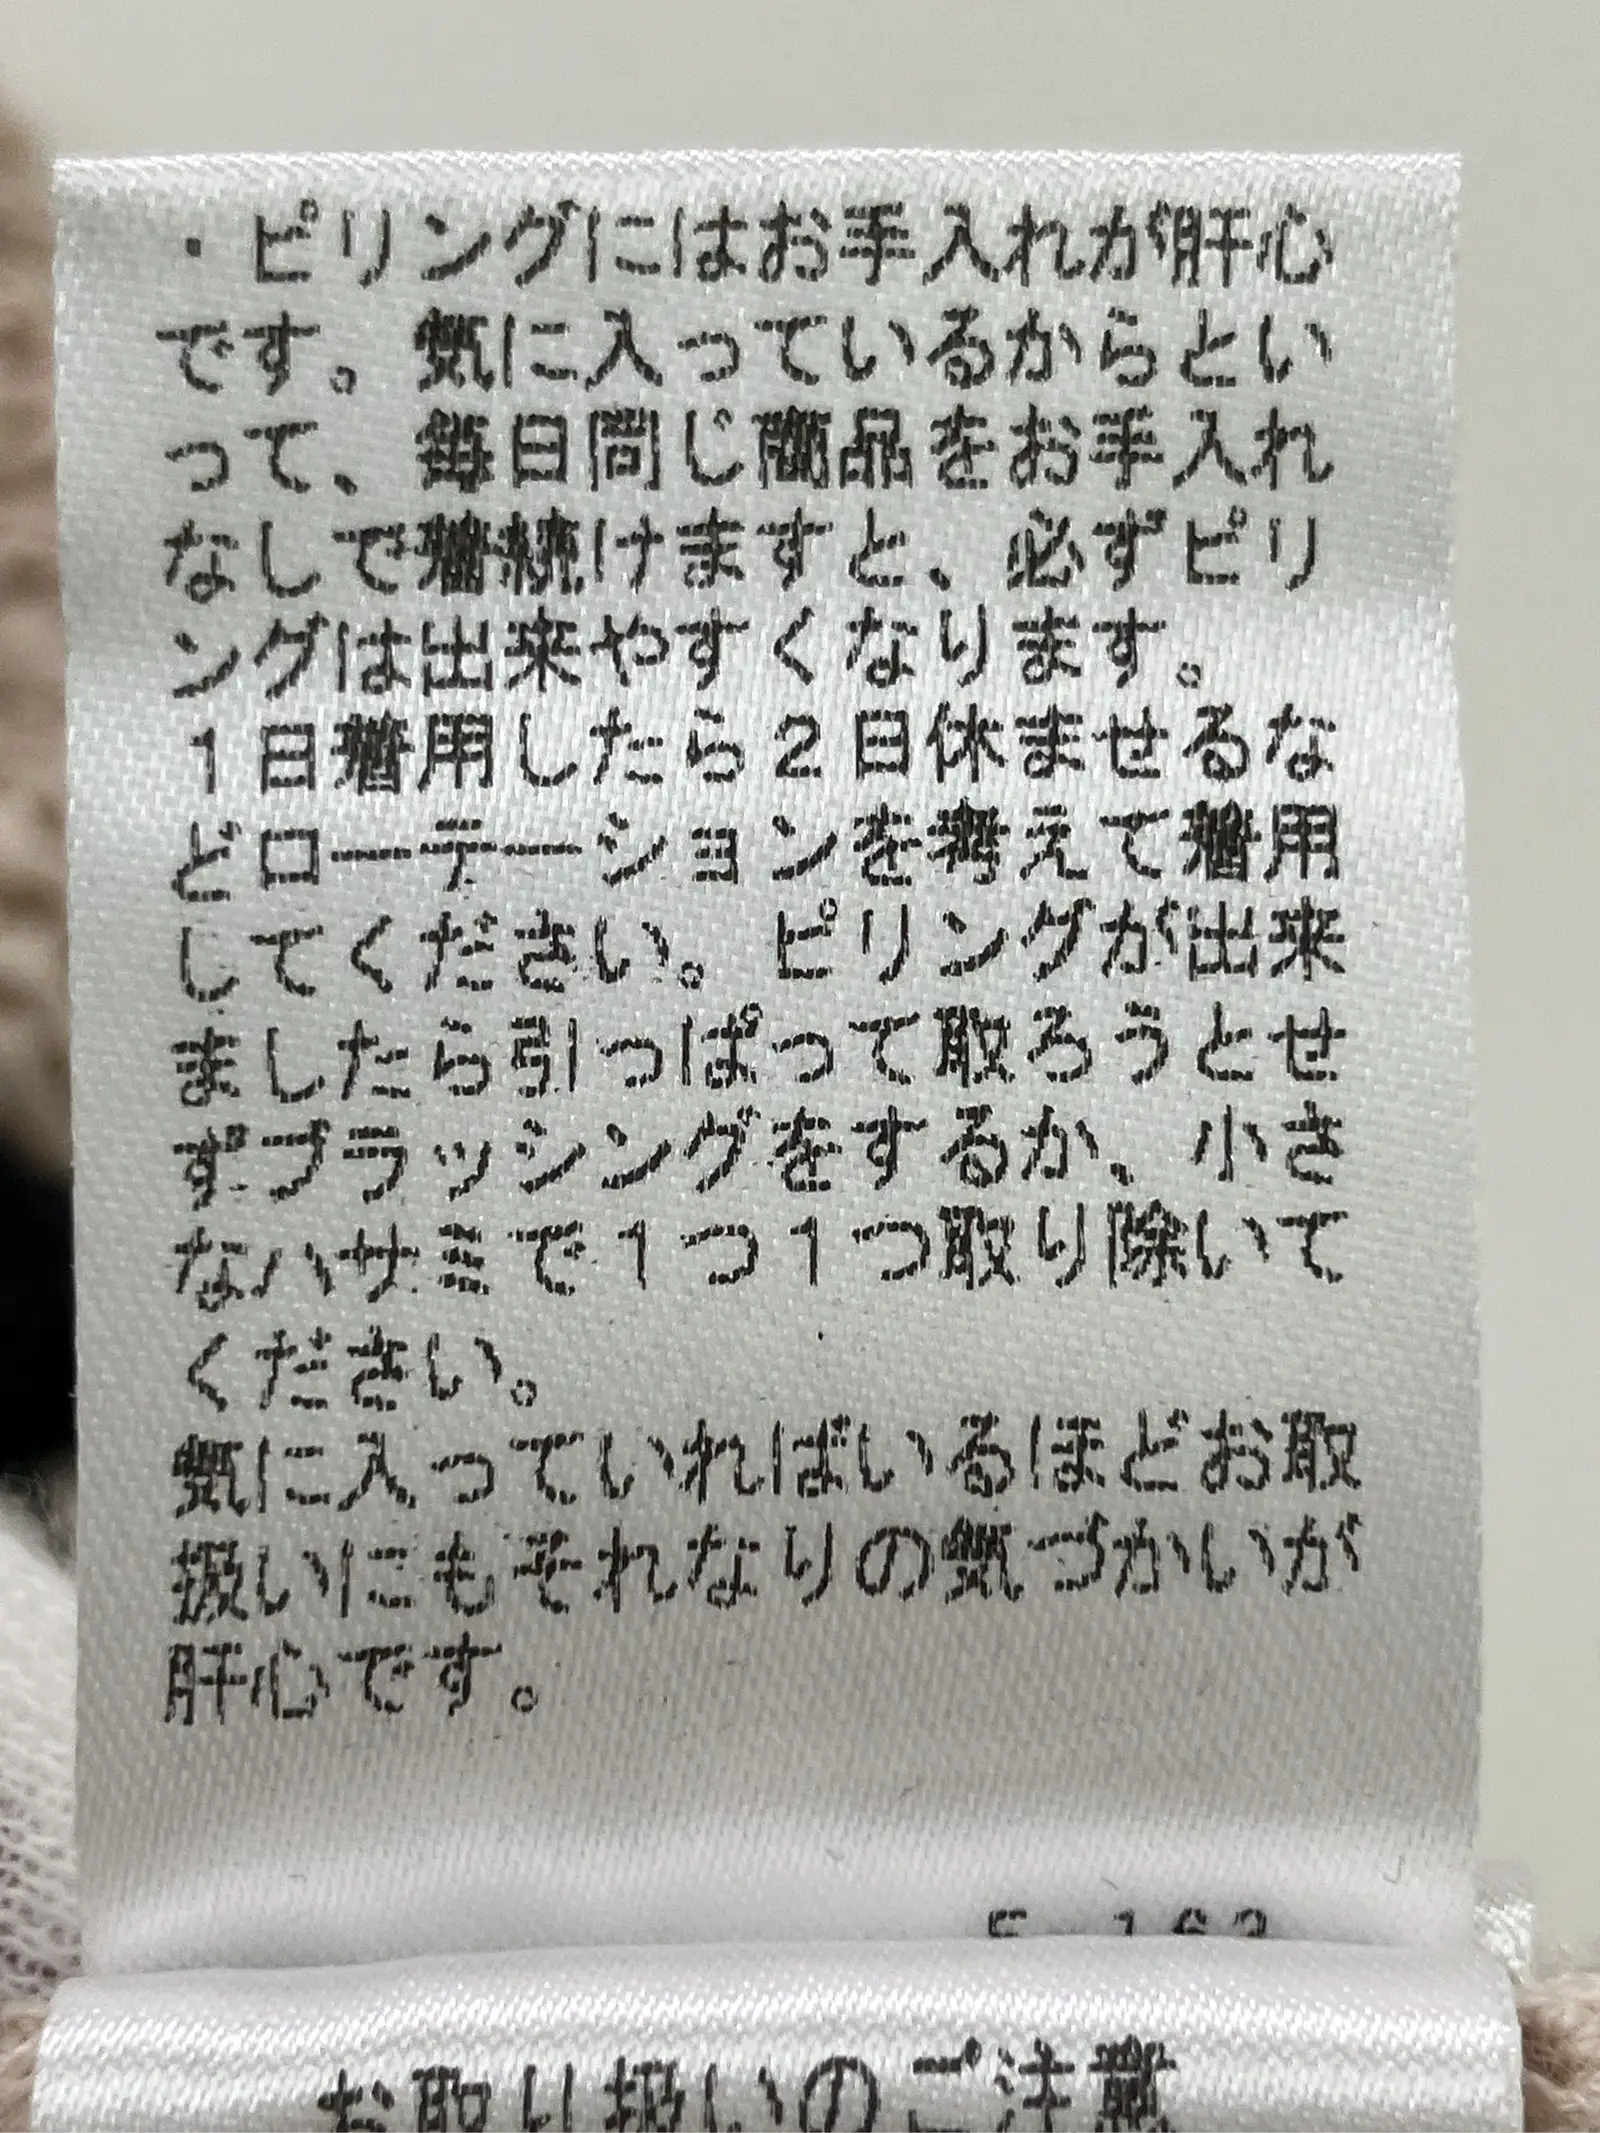 ・ピリングにはお手入れが肝心
です。気に入っているからとい
って、毎日同じ商品をお手入れ
なしで着続けますと、必ずピリ
ングは出来やすくなります。
1日着用したら2日休ませるな
どローテーションを考えて着用
してください。ピリングが出来
ましたら引っぱって取ろうとせ
ずブラッシングをするか、小さ
なハサミで1つ1つ取り除いて
ください。
気に入っていればいるほどお取
扱いにもそれなりの気づかいが
肝心です。
お取り扱いのご注意